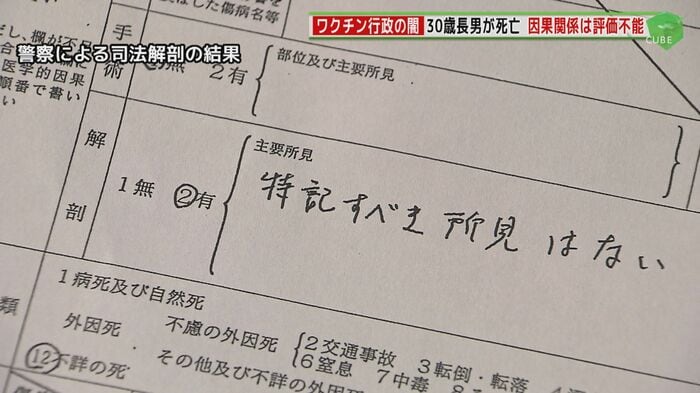 ワクチン行政の闇 30歳長男が死亡 因果関係は評価不能
CUBE
警察による司法解剖の結果
傷病名等
手術
無 2有
部位及び主要所見
だし、欄が不足
医学的因果
順番で書い
解剖
1無 ②有
主要所見
特記すべき所見はない
類
1病死及び自然死
外因死 不慮の外因死 2交通事故 3転倒・転落
6窒息 7中毒
その他及び不詳の外因死
⑫不詳の死